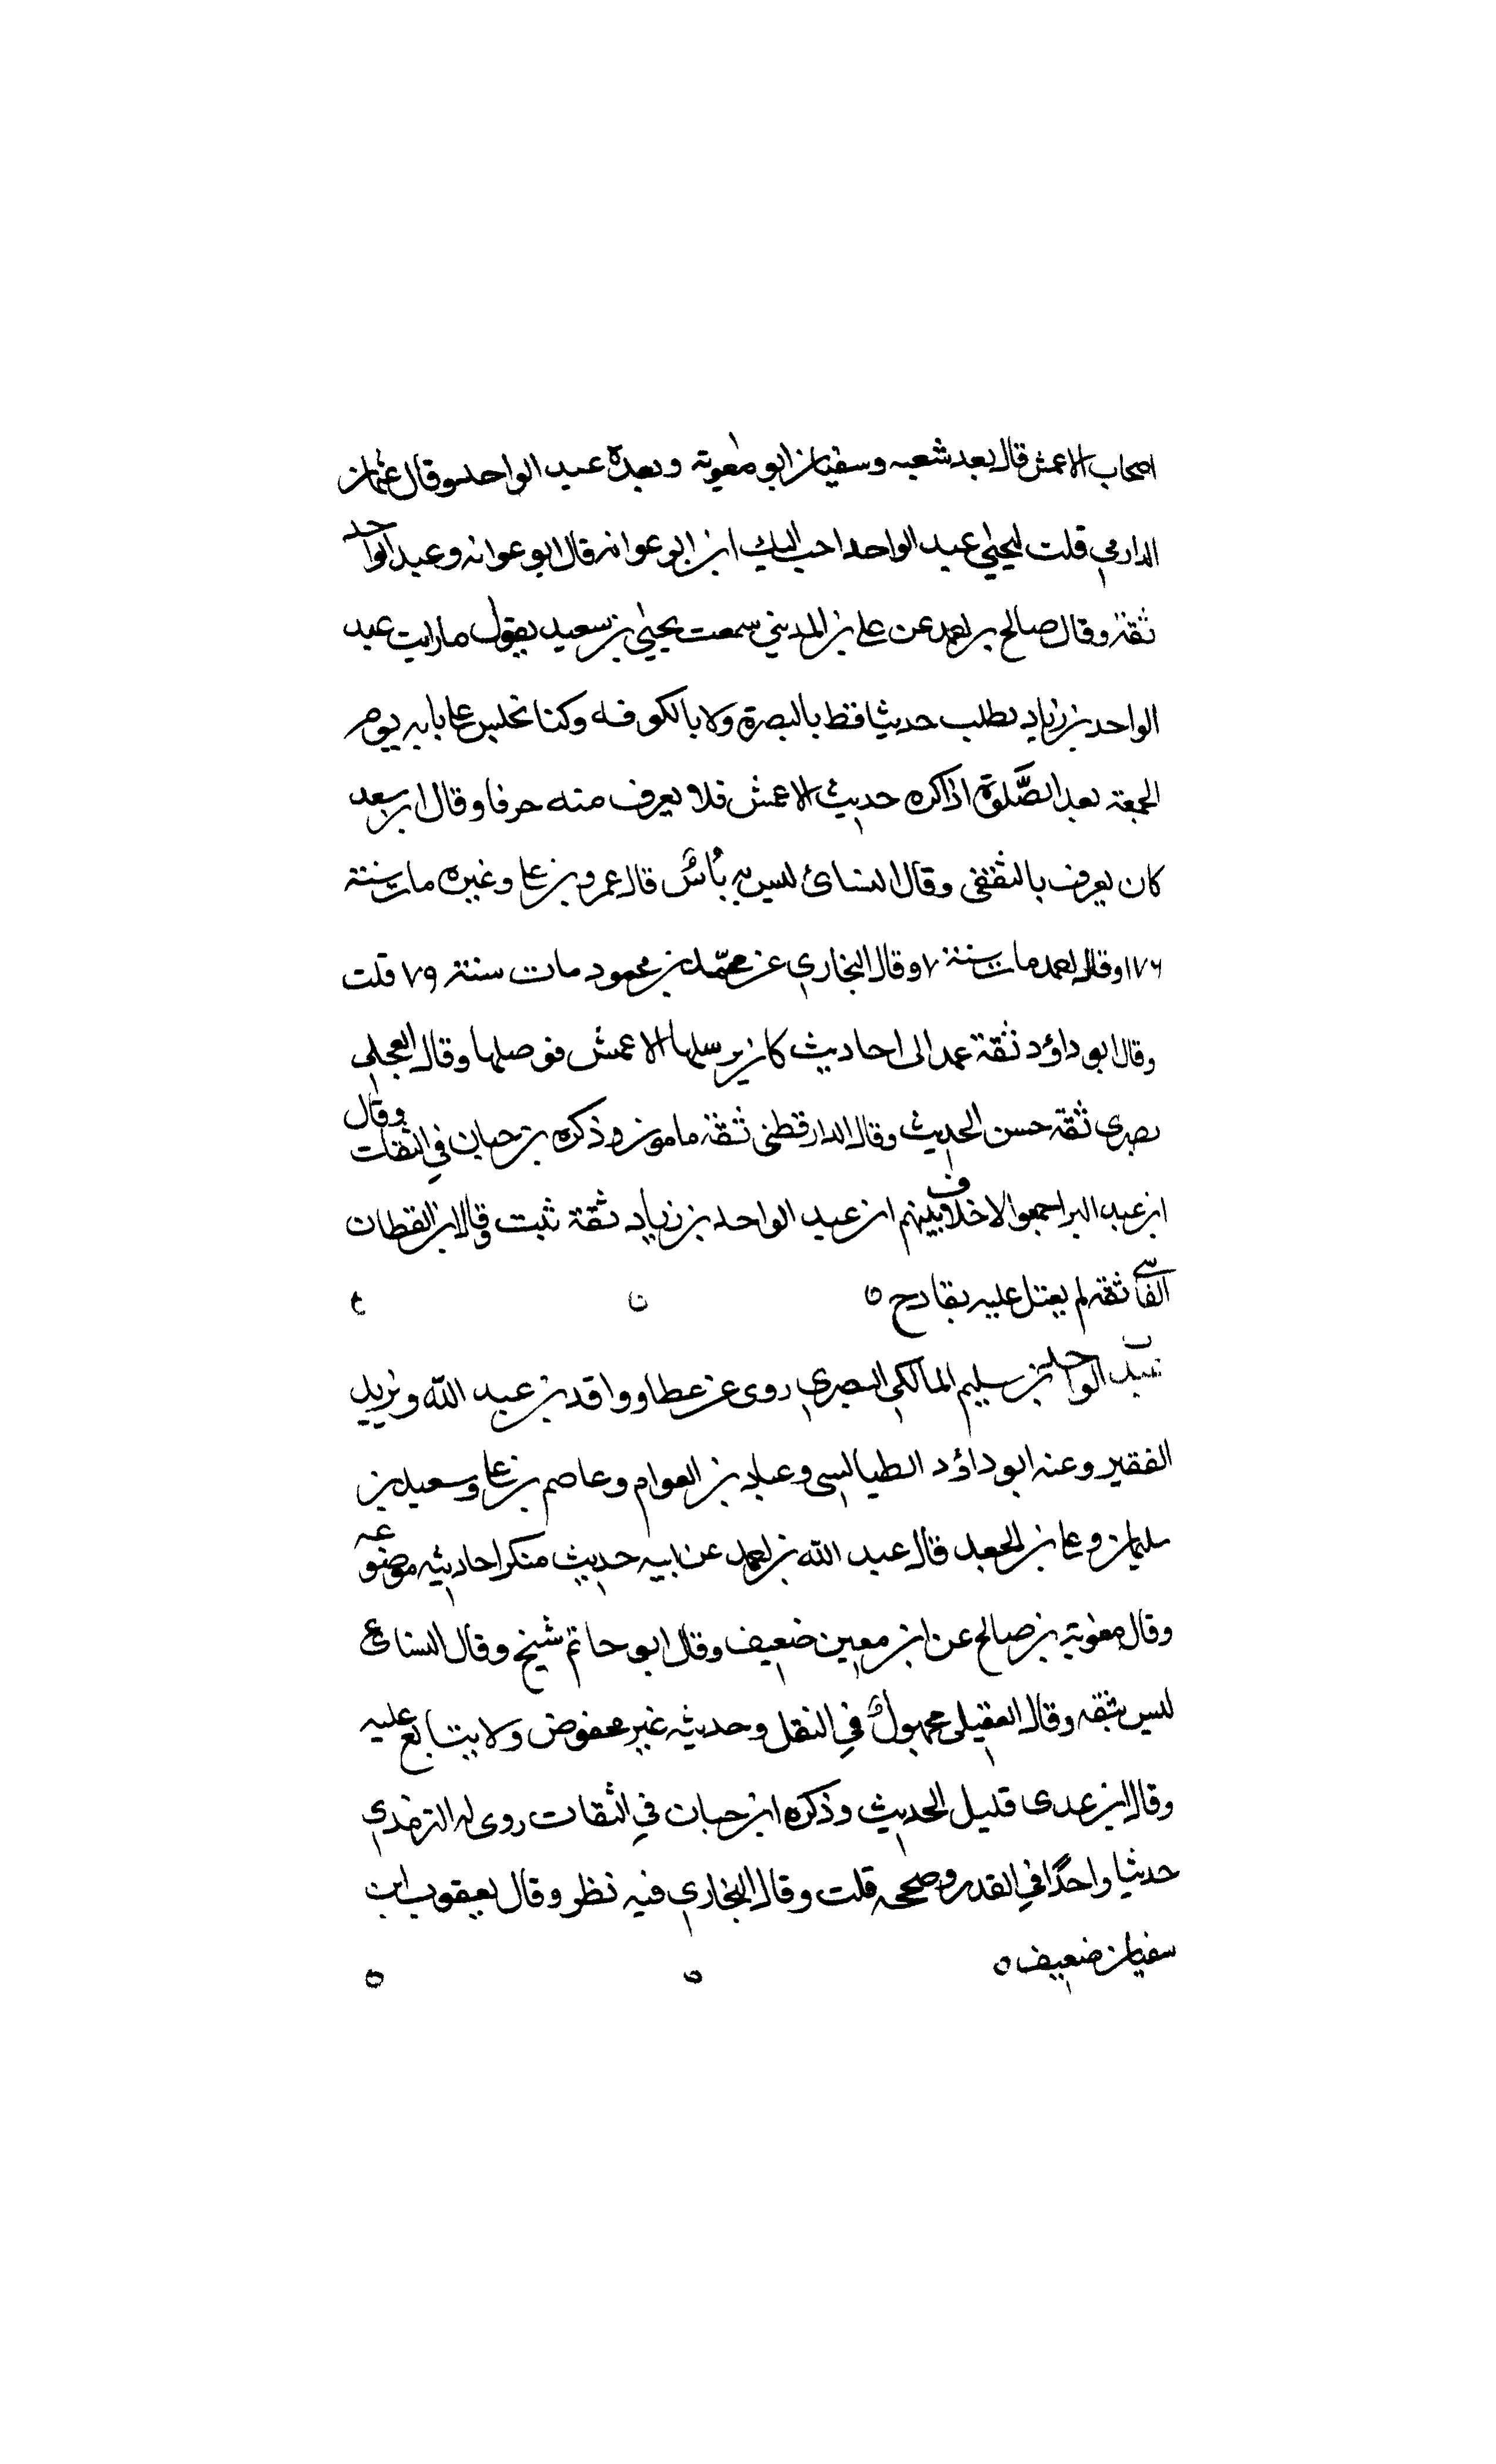 اصحاب الاعمش قال بعد شعبه وسفيان ابو معٰوية وبعده عبد الواحد وقال عثمان
الدارمي قلت ليحيٰي عبد الواحد احب اليك ابن ابو عوانه قال ابو عوانه وعبد الواحد
ثقة وقال صالح بن احمد عن علي بن المديني سمعت يحيٰي بن سعيد يقول ما رايت عبد
الواحد بن زياد يطلب حديثا قط بالبصرة ولا بالكوفه وكنا نجلس علي بابه يوم
الجمعة بعد الصَّلوة اذاكره حديث الاعمش فلا يعرف منه حرفا وقال ابن سعد
كان يعرف بالثقفي وقال النسائ ليس به بُأسٌ قال عمرو بن علي وغيره مات سنة
١٧٦ وقال احمد مات سنة ٧ وقال البخاري عن محمّد بن محمود مات سنة ٧٩ قلت
وقال ابو داؤد ثقة عمد الى احاديث كان يرسلها الاعمش فوصلها وقال العجلي
بصرى ثقة حسن الحديث وقال الدارقطني ثقة مامون وذكره بن حبان في الثقات وقال
ابن عبد البر اجمعوا لا خلاف بينهم ان عبد الواحد بن زياد ثقة ثبت وقال ابن القطان
الفاسي ثقة لم يعتل عليه بقادح ٥
عبد الواحد بن سليم المالكي البصري روى عن عطا وواقد بن عبد الله ويزيد
الفقير وعنه ابو داؤد الطيالسي وعباد بن العوام وعاصم بن علي وسعيد بن
سليمان وعلي بن الجعد قال عبد الله بن احمد عن ابيه حديث منكر احاديثه موضوعه
وقال معٰوية بن صالح عن ابن معين ضعيف وقال ابو حاتم شيخ وقال النسائ
ليس بثقه وقال العقيلي مجهولٌ في النقل وحديثه غير محفوض ولا يتابع عليه
وقال ابن عدى قليل الحديث وذكره ابن حبان في الثقات روى له الترمذي
حديثا واحدًا في القدر وصححه قلت وقال البخاري فيه نظر وقال يعقوب ابن
سفيان ضعيف ٥